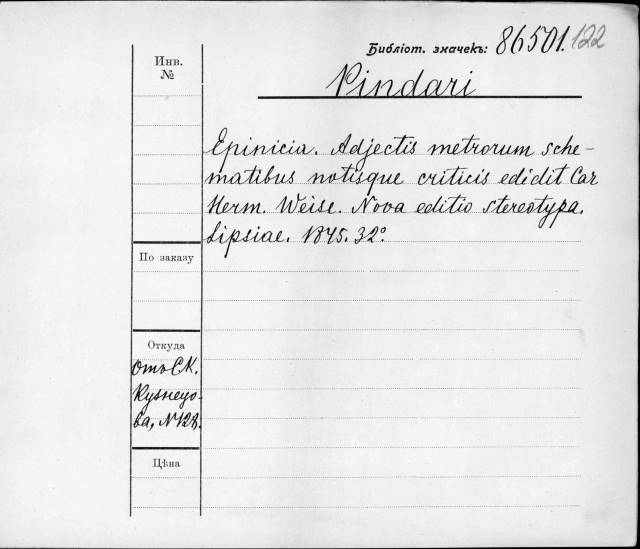 Библіот. значекъ: 86501. 122
Инв.
№
Pindari
Epinicia. Adjectis metrorum sche-
matibus notisque criticis edidit Car
Herm. Weise. Nova editio stereotypa.
Lipsiae. 1845. 32°.
По заказу
Откуда
Отъ С.К.
Кузнецо-
ва, №128.
Цѣна